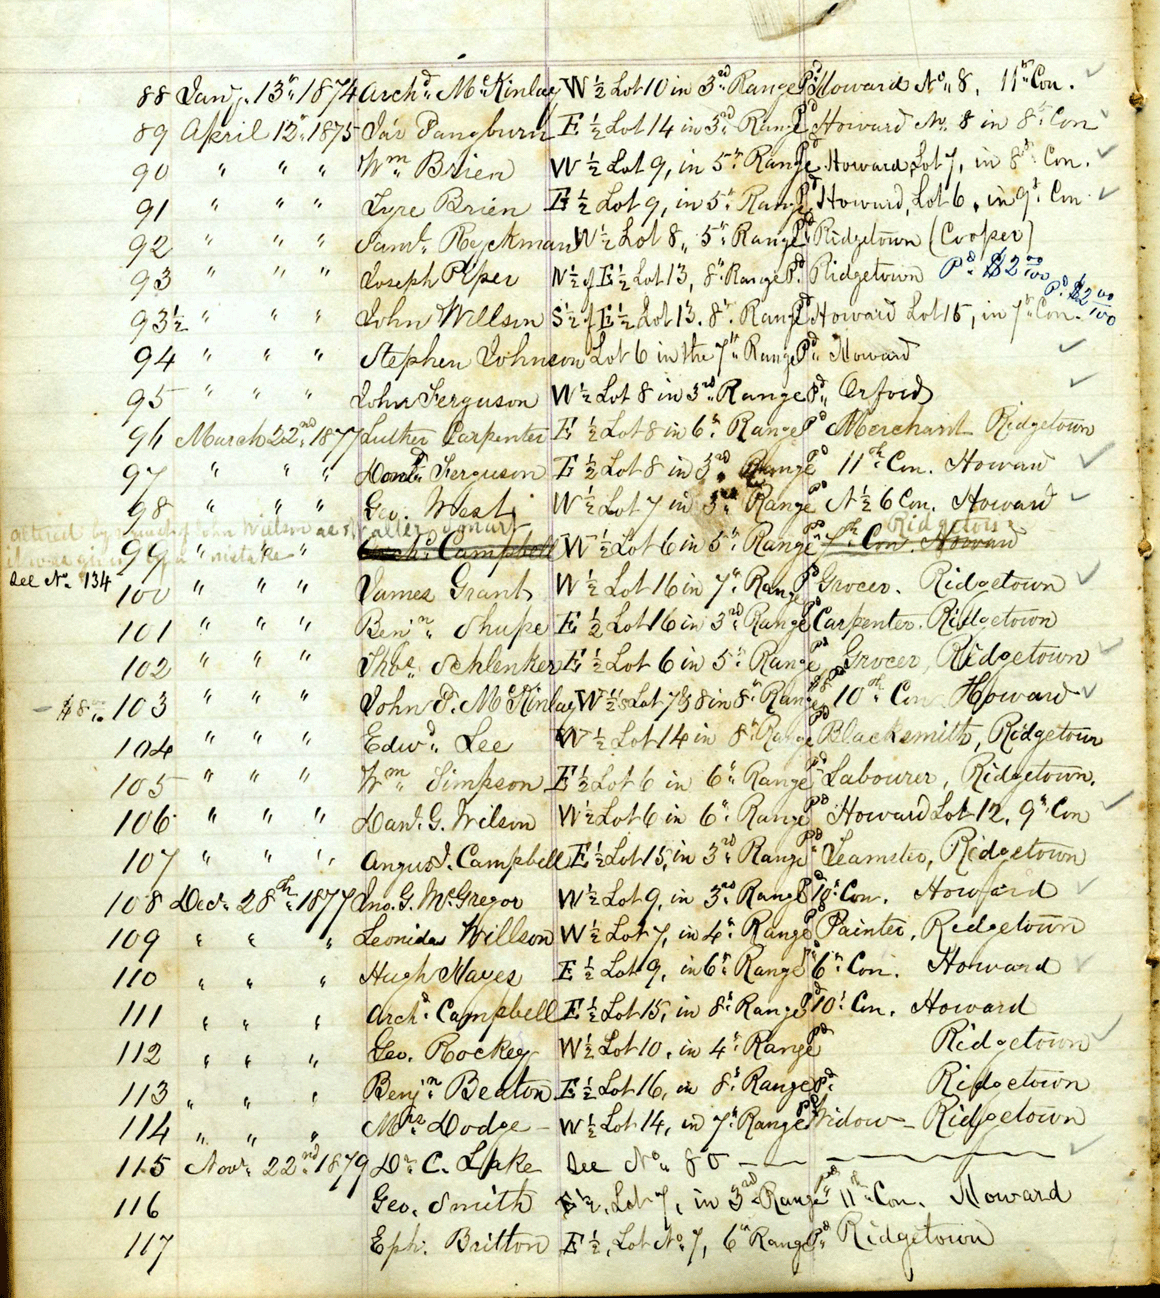 88 Jany. 13th 1874 Archd. McKinlay W ½ Lot 10 in 3rd Range Pd Howard No. 8, 11th Con.
89 April 12th 1875 Jas Pangburn E ½ Lot 14 in 3rd Range Pd Howard No. 8 in 8th Con
90 " " " Wm Brien W ½ Lot 9, in 5th Range Pd Howard, Lot 7, in 8th Con.
91 " " " Tyre Brien E ½ Lot 9, in 5th Range Pd Howard, Lot 6, in 9th Con
92 " " " Saml. Ryckman W ½ Lot 8, 5th Range Pd Ridgetown (Cooper)
93 " " " Joseph Piper N ½ of E ½ Lot 13, 8th Range Pd Ridgetown Pd $2 00/100
93½ " " " John Willson S ½ of E ½ Lot 13. 8th Range Pd Howard Lot 15, in 7th Con. Pd $2 00/100
94 " " " Stephen Johnson Lot 6 in the 7th Range Pd Howard
95 " " " John Ferguson W ½ Lot 8 in 3rd Range Pd Orford
96 March 22nd 1877 Luther Carpenter E ½ Lot 8 in 6th Range Pd Merchant Ridgetown
97 " " " Ferguson E ½ Lot 8 in 3rd Range Pd 11th Con. Howard
98 " " " Geo. West W ½ Lot 7 in 3rd Range Pd N ½ 6 Con. Howard
altered by John Wilson as Ridgetown
it was given by a mistake
99 " " " Archd. Campbell W ½ Lot 6 in 5th Range Pd Con. Howard
See No. 134
100 " " " James Grant W ½ Lot 16 in 7th Range Pd Grocer. Ridgetown
101 " " " Benjn. Shupe E ½ Lot 16 in 3rd Range Pd Carpenter. Ridgetown
102 " " " Thos. Schlenker E ½ Lot 6 in 5th Range Pd Grocer, Ridgetown
$8 103 " " " John D. McKinlay W ½'s Lot 7 & 8 in 8th Range $8 Pd 10th Con Howard
104 " " " Edwd. Lee W ½ Lot 14 in 8th Range Pd Blacksmith, Ridgetown
105 " " " Wm Simpson E ½ Lot 6 in 6th Range Pd Labourer, Ridgetown.
106 " " " Danl. G. Wilson W ½ Lot 6 in 6th Range Pd Howard Lot 12, 9th Con
107 " " " Angus J. Campbell E ½ Lot 15, in 3rd Range Pd Teamster, Ridgetown
108 Decr. 28th 1877 Jno. G. McGregor W ½ Lot 9, in 3rd Range Pd 10th Con. Howard
109 " " " Leonidas Willson W ½ Lot 7, in 4th Range Pd Painter, Ridgetown
110 " " " Hugh Hayes E ½ Lot 9, in 6th Range Pd 6th Con. Howard
111 " " " Archd. Campbell E ½ Lot 15, in 8th Range Pd 10th Con. Howard
112 " " " Geo. Rockey W ½ Lot 10, in 4th Range Pd Ridgetown
113 " " " Benjn Beaton E ½ Lot 16, in 8th Range Pd Ridgetown
114 " " " Mrs Dodge – W ½ Lot 14, in 7th Range Pd Widow – Ridgetown
115 Novr. 22nd 1879 Dr. C. Lake See No. 80
116 Geo. Smith E ½, Lot 7, in 3rd Range Pd 11th Con. Howard
117 Eph. Britton E ½, Lot No. 7, 6th Range Pd Ridgetown